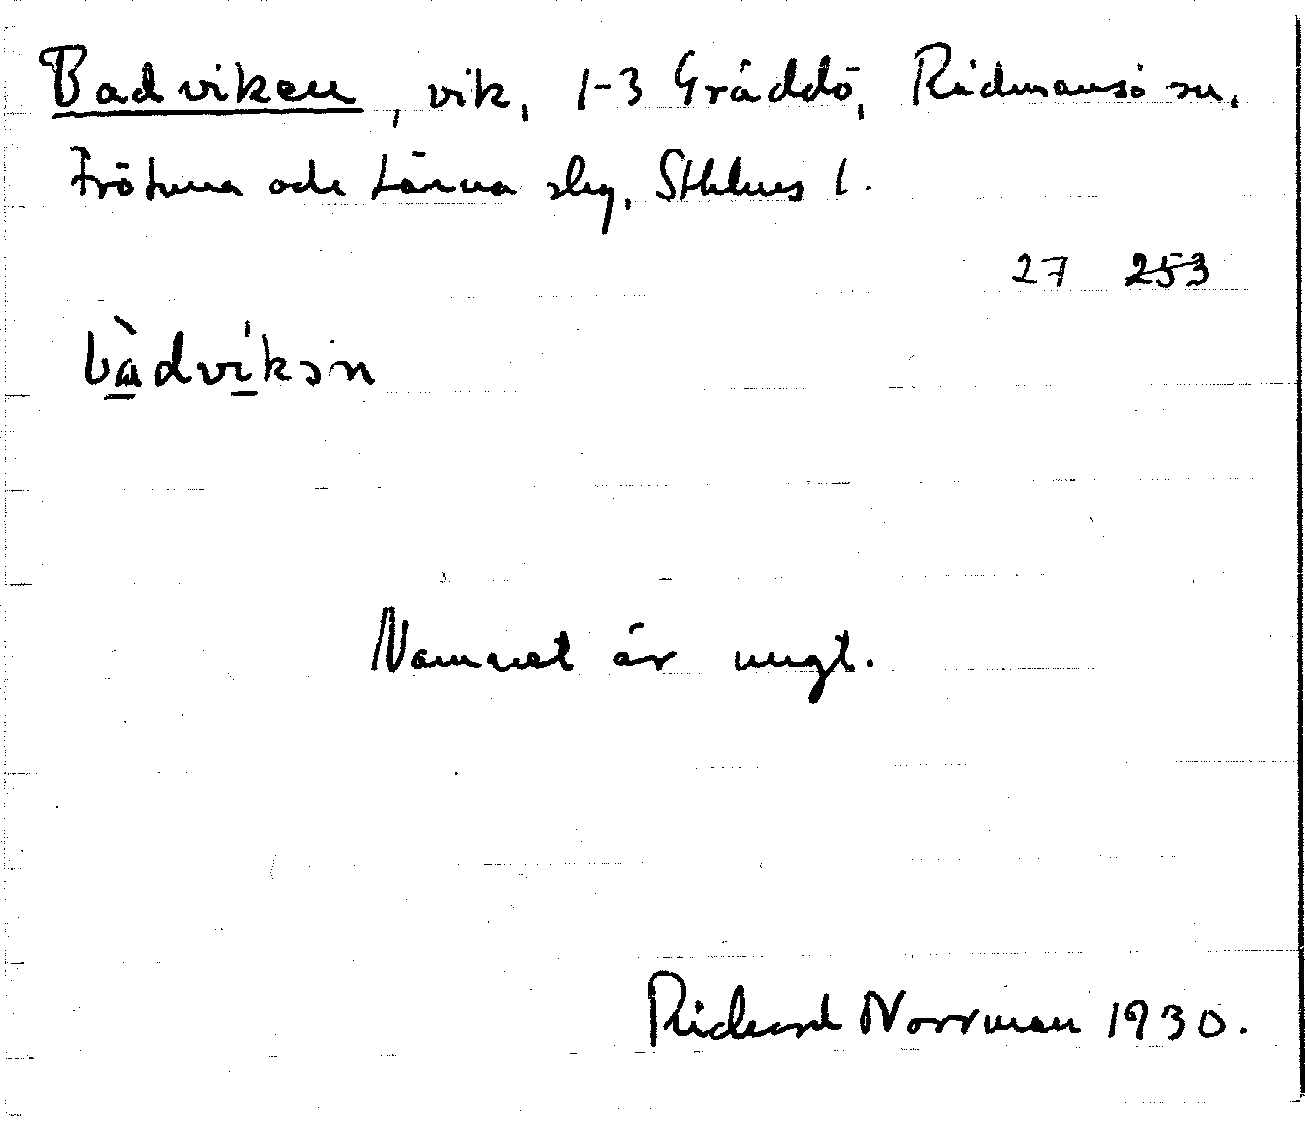 Badviken, vik, 1-3 Gräddö, Rådmansö sn,
Frötuna och Länna slg, Sthlms l.
27 253
bàdvíkən
Namnet är ungt.
Rickard Norrman 1930.